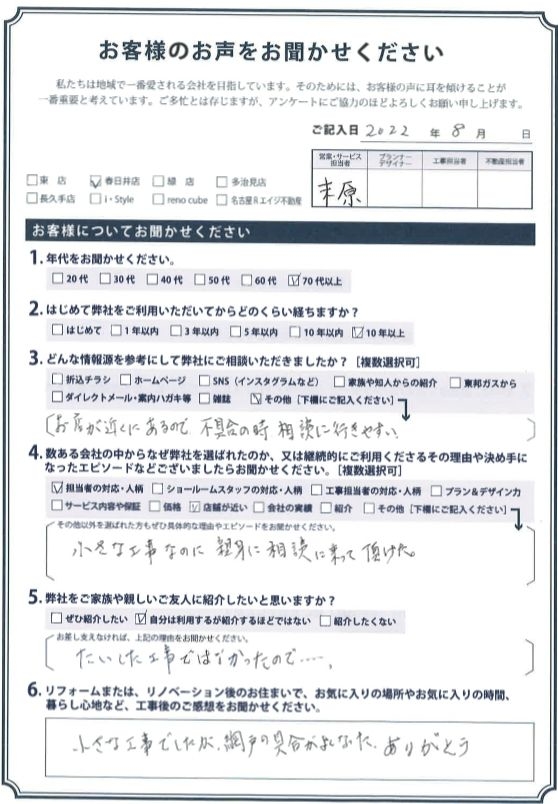 お客様のお声をお聞かせください
私たちは地域で一番愛される会社を目指しています。そのためには、お客様の声に耳を傾けることが
一番重要と考えています。ご多忙とは存じますが、アンケートにご協力のほどよろしくお願い申し上げます。
ご記入日 2022 年 8 月 日
営業・サービス担当者 プランナーデザイナー 工事担当者 不動産担当者
末原
東 店 春日井店 緑 店 多治見店
長久手店 i・Style reno cube 名古屋Rエイジ不動産
お客様についてお聞かせください
1. 年代をお聞かせください。
20代 30代 40代 50代 60代 70代以上
2. はじめて弊社をご利用いただいてからどのくらい経ちますか?
はじめて 1年以内 3年以内 5年以内 10年以内 10年以上
3. どんな情報源を参考にして弊社にご相談いただきましたか?[複数選択可]
折込チラシ ホームページ SNS(インスタグラムなど) 家族や知人からの紹介 東邦ガスから
ダイレクトメール・案内ハガキ等 雑誌 その他[下欄にご記入ください]
お店が近くにあるので 不具合の時 相談に行きやすい
4. 数ある会社の中からなぜ弊社を選ばれたのか、又は継続的にご利用くださるその理由や決め手に
なったエピソードなどございましたらお聞かせください。[複数選択可]
担当者の対応・人柄 ショールームスタッフの対応・人柄 工事担当者の対応・人柄 プラン&デザイン力
サービス内容や保証 価格 店舗が近い 会社の実績 紹介 その他[下欄にご記入ください]
その他以外を選ばれた方もぜひ具体的な理由やエピソードをお聞かせください。
小さな工事なのに 親身に相談に乗って頂けた。
5. 弊社をご家族や親しいご友人に紹介したいと思いますか?
ぜひ紹介したい 自分は利用するが紹介するほどではない 紹介したくない
お差し支えなければ、上記の理由をお聞かせください。
たいした工事ではなかったので……。
6. リフォームまたは、リノベーション後のお住まいで、お気に入りの場所やお気に入りの時間、
暮らし心地など、工事後のご感想をお聞かせください。
小さな工事でしたが、網戸の具合がよくなった。ありがとう